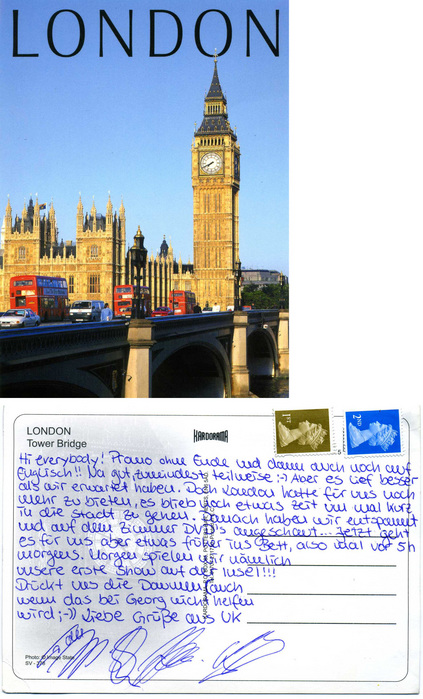 LONDON
LONDON
Tower Bridge
KARDORAMA
1st
2nd
Hi everybody! Promo ohne Ende und dann auch noch auf
Englisch!! Na gut, zumindest teilweise ;-) Aber es lief besser
als wir erwartet haben. Doch London hatte für uns noch
mehr zu bieten, es blieb noch etwas Zeit um mal kurz
in die Stadt zu gehen. Danach haben wir entspannt
und auf dem Zimmer DVD's angeschaut... Jetzt geht
es für uns aber etwas früher ins Bett, also mal vor 5h
morgens. Morgen spielen wir nämlich
unsere erste Show auf der Insel!!!
Drückt uns die Daumen auch
wenn das bei Georg nicht helfen
wird ;-)) Liebe Grüße aus UK
Photo: © Image State